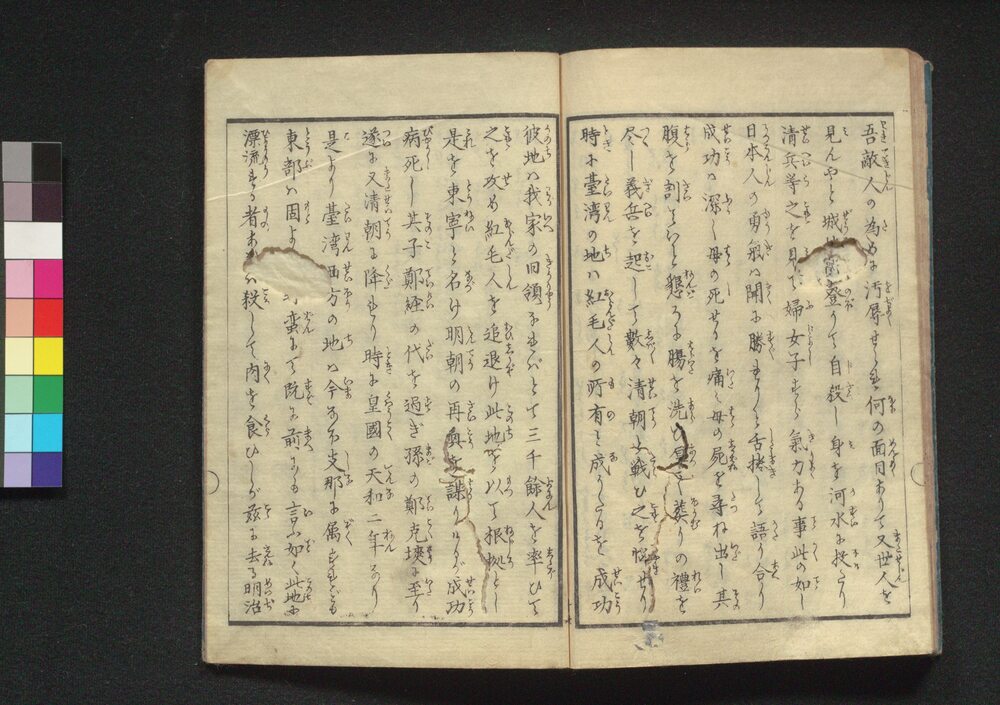 吾敵人の為めに汚辱せられ何の面目ありて又世人を
見んやと城に登りて自殺し身を河水に投たり
清兵等之を見て婦女子すら氣力ある事此の如し
日本人の勇氣は聞に勝れりと舌捲して語り合り
成功は深く母の死せるを痛み母の屍を尋ね出し其
腹を割き懇ろに腸を洗ひ葬りの禮を
尽し義兵を起して數々清朝と戦ひ之を悩せり
時に臺湾の地は紅毛人の所有と成りたるを成功
彼地は我家の旧領なればとて三千餘人を率ひて
之を攻め紅毛人を追退け此地を以て根拠とし
是を東寧と名け明朝の再興を謀りけるが成功
病死し其子鄭経の代を過ぎ孫の鄭克塽に至り
遂に又清朝に降れり時に皇國の天和二年なり
是より臺湾西方の地は今なお支那に属すれども
東部は固より蛮にて既に前にも言ふ如く此地に
漂流する者あれば殺して肉を食ひしが茲に去る明治